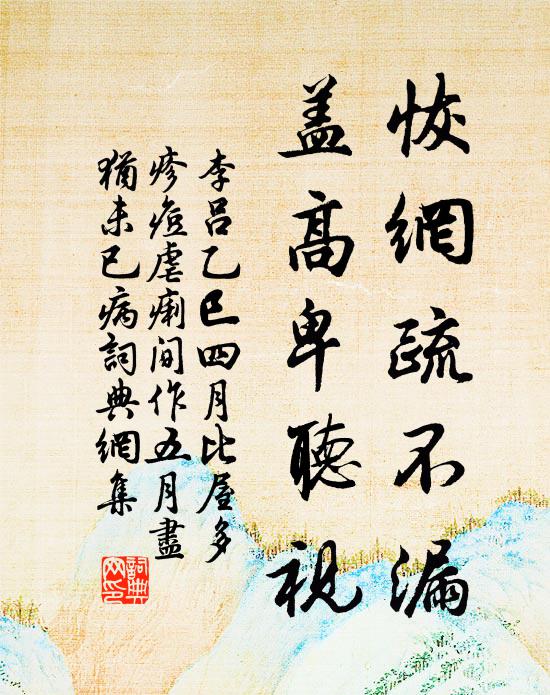 恢網疏不漏
盖高卑聽視
李吕乙巳四月比屋多
疹痘虐痢间作五月盡
猶未已病詞典網集
詞典
网印